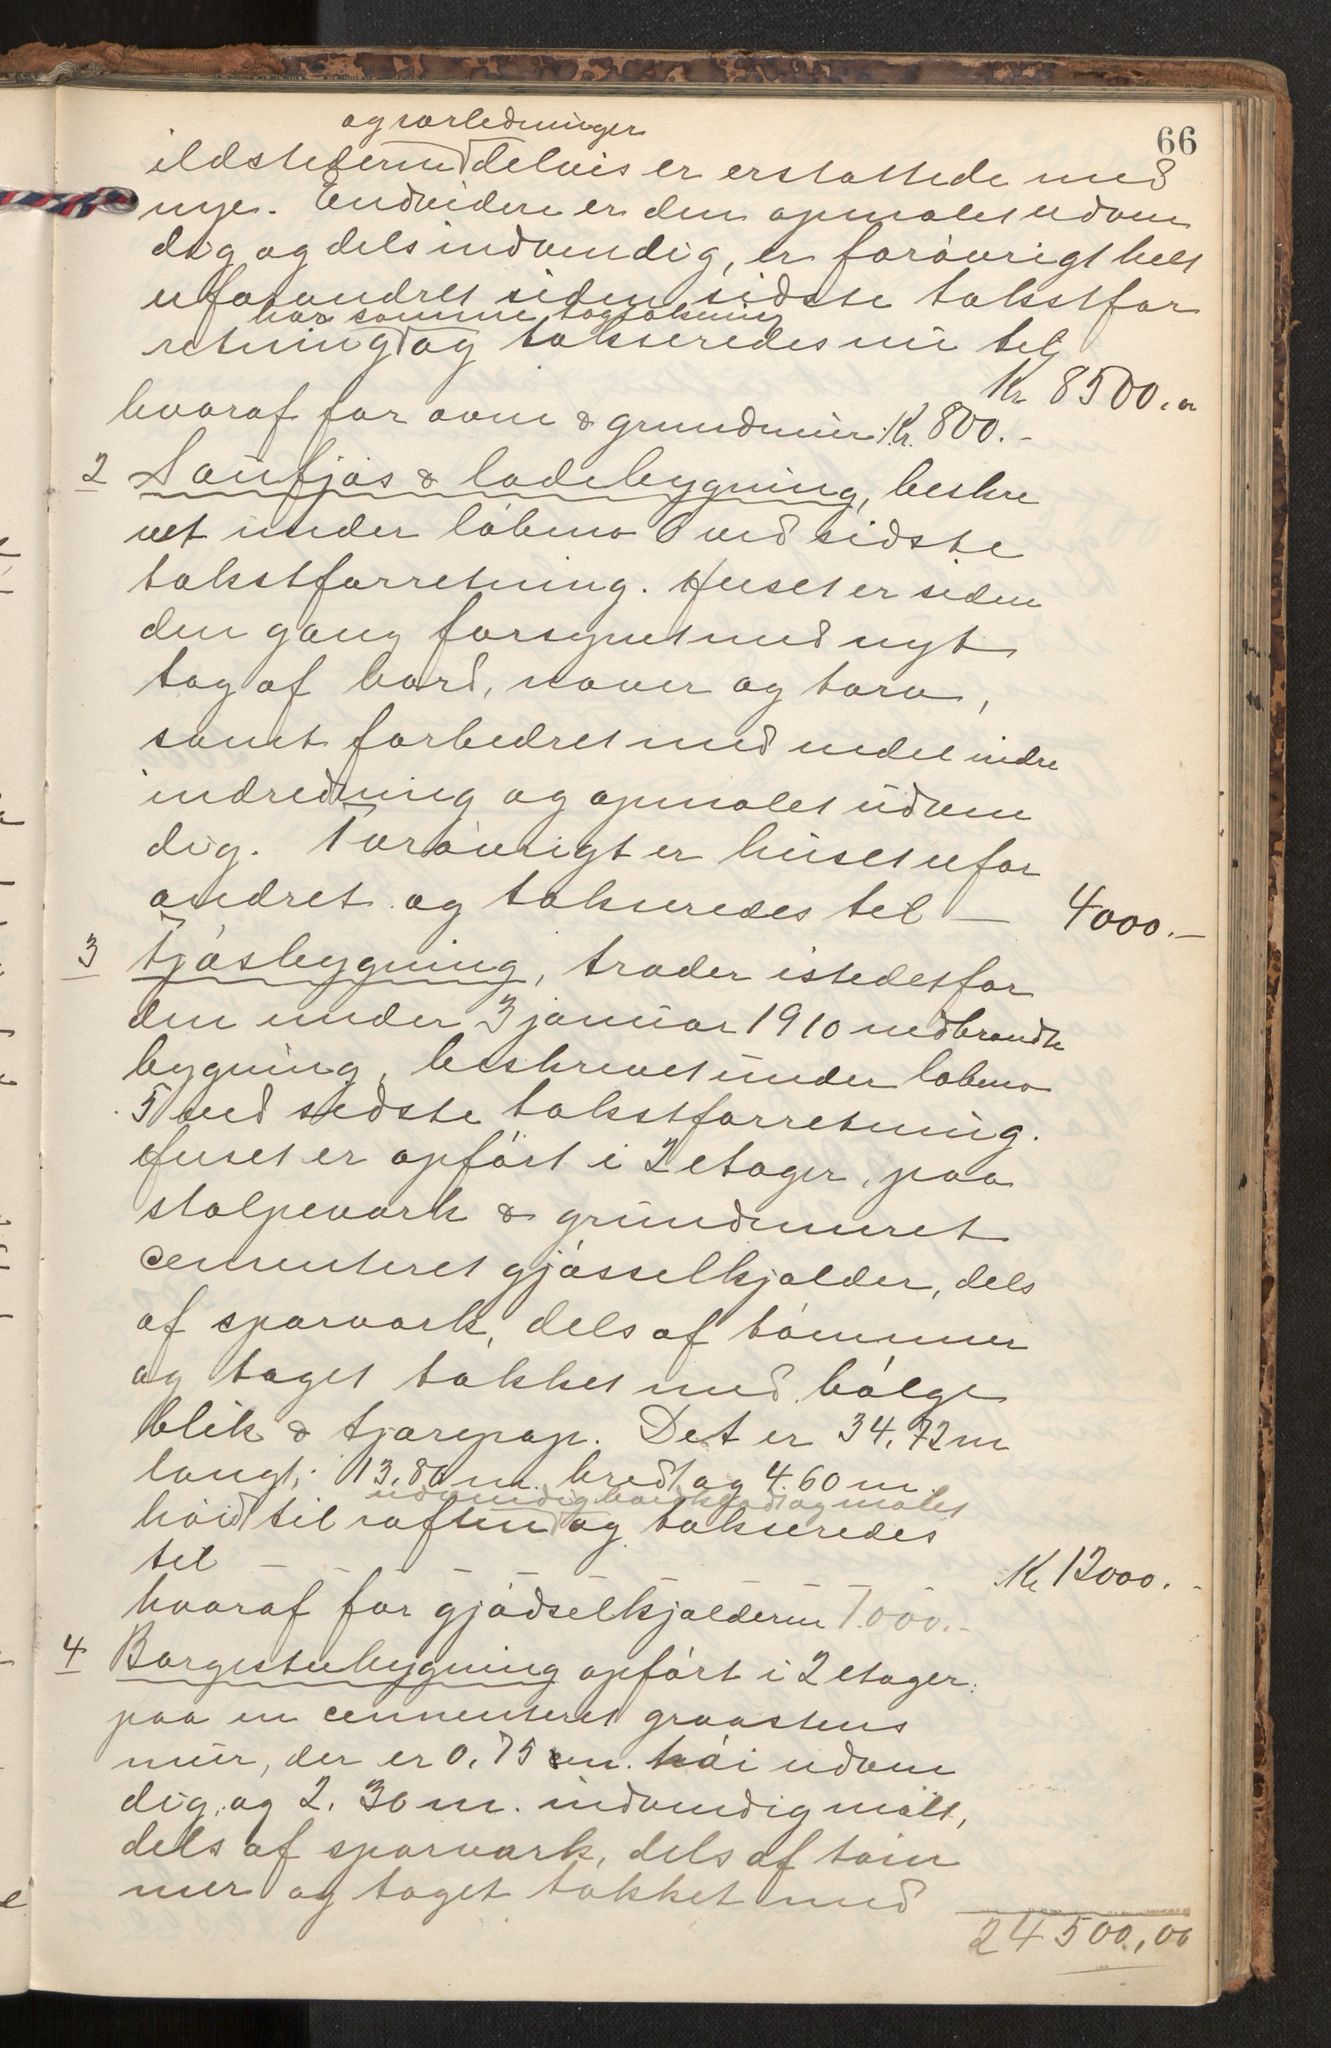 66
og rørledninger
ildstederne delvis er erstattede med
nye. Endvidere er den opmalet udven
dig og dels indvendig, er forøvrigt helt
uforandret siden sidste takstfor
har samme tagtækning
retning og takseredes nu til
Kr 8500.00
hvoraf for ovne & grundmur Kr. 800.-
2 Saufjøs & ladebygning, beskre
vet under løbeno 6 ved sidste
takstforretning. Huset er siden
den gang forsynet med nyt
tag af bord, næver og torv,
samt forbedret med nedel indre
indredning og opmalet udven
dig. Forøvrigt er huset ufor
andret og takseredes til — 4000.—
3 Fjøsbygning, træder istedetfor
den under 3 januar 1910 nedbrændte
bygning, beskrevet under løbeno
5 ved sidste takstforretning.
Huset er opført i 2 etager, paa
stolpeværk & grundmuret
cementeret gjødselkjælder, dels
af sparværk, dels af tømmer
og taget tækket med bølge
blik & tjærepap. Det er 34,72 m
langt, 13,80 m. bredt og 4.60 m.
udvendig bordklædt og malet
høit til raften og takseredes
til — — — — — Kr 12000.-
hvoraf for gjødselkjælderen 7.000.-
4 Borgestubygning opført i 2 etager
paa en cementeret graastens
mur, der er 0.75 m. høi udven
dig, og 2.30 m. indvendig målt,
dels af sparværk, dels af tøm
mer og taget tækket med
24500,00